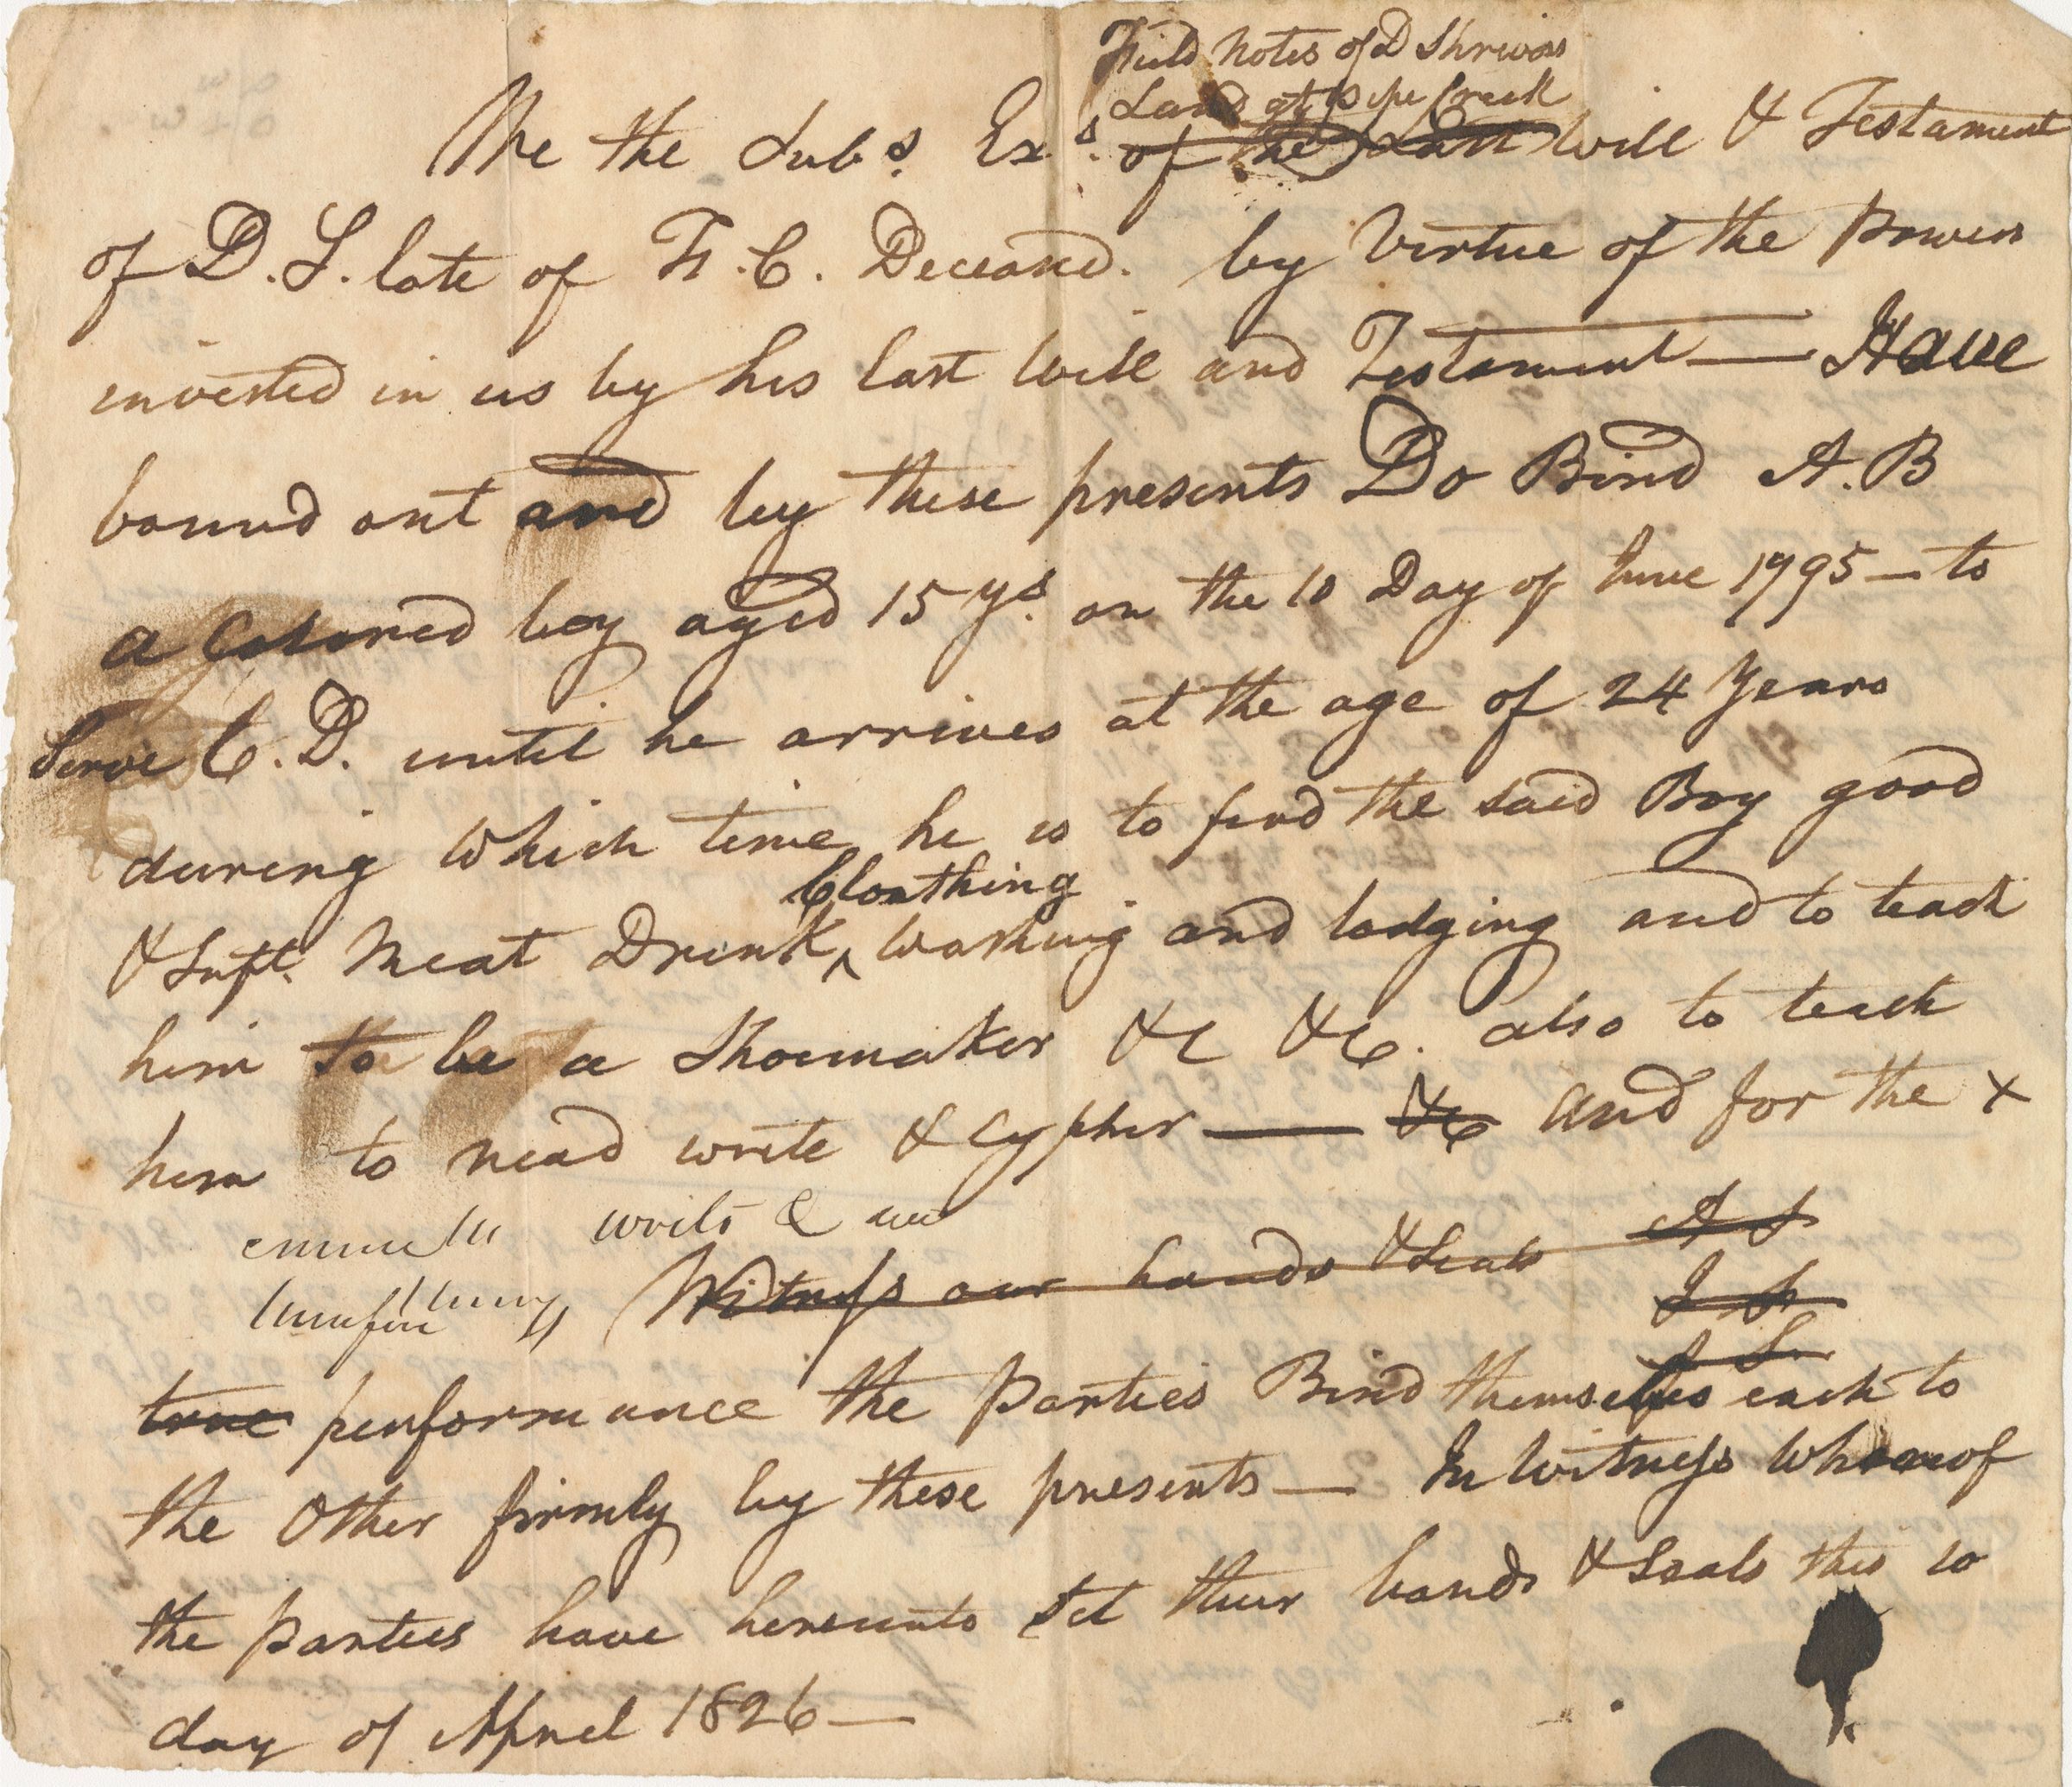 Field Notes of D Shrivers
Land at pipe Creek
We the Subs. Exs. of the Last Will & Testament
of D. S. late of F. C. Deceased. by Virtue of the Powers
invested in us by his last Will and Testament — Have
bound out and by these presents Do Bind A. B
a Colored boy aged 15 ys. on the 10 Day of June 1795 — to
Serve C. D. until he arrives at the age of 24 Years
during which time he is to find the said Boy good
Cloathing
& Suft. Meat Drink ^ Washing and lodging and to teach
him to be a Shoemaker &c &c. also to teach
him to read write & Cypher — &c and for the x
writs &
Witness our hands & Seals A S
J S
J S.
true performance the Parties Bind themselves each to
the Other firmly by these presents — In Witness Whereof
the parties have hereunto set their hands & Seals this 10
day of April 1826 —